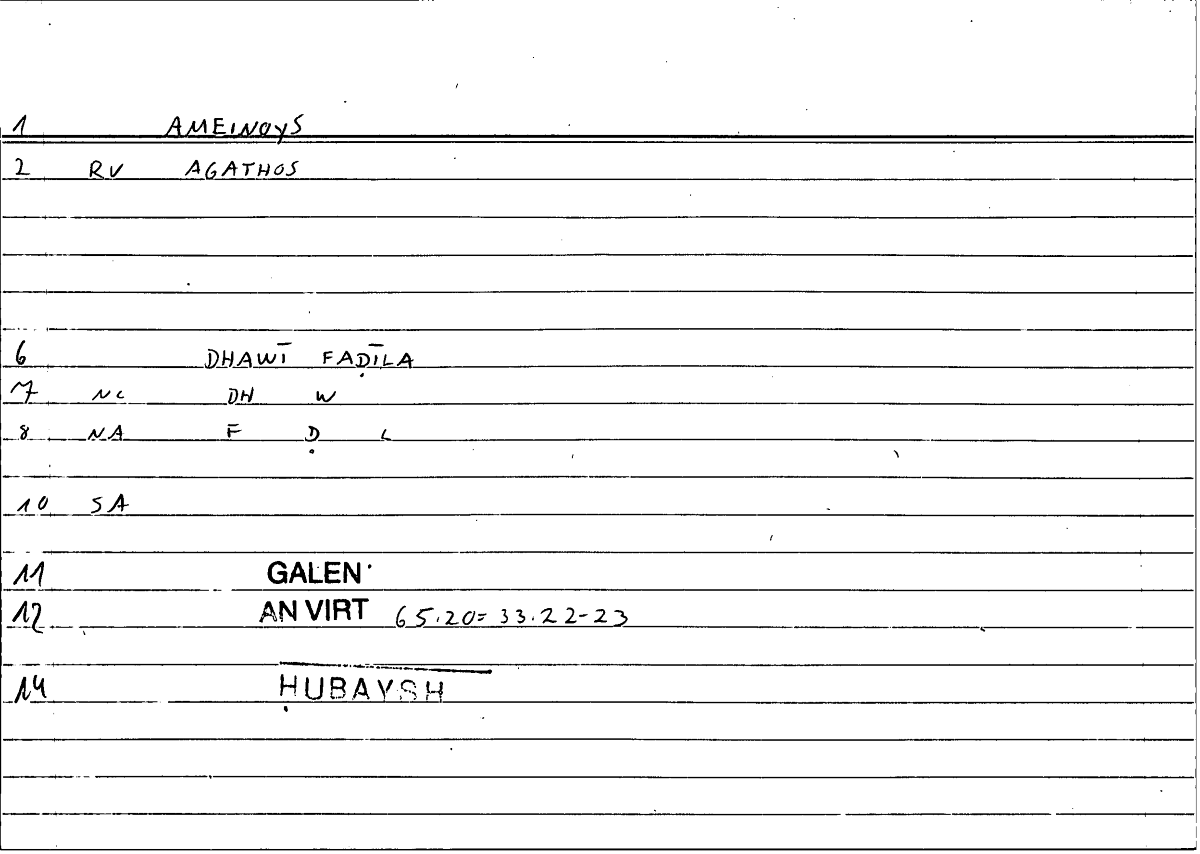 1 AMEINOYS
2 RV AGATHOS
6 DHAWĪ FAḌĪLA
7 NC DH W
8 NA F Ḍ L
10 SA
11 GALEN
12 AN VIRT 65.20=33.22-23
14 ḤUBAYSH